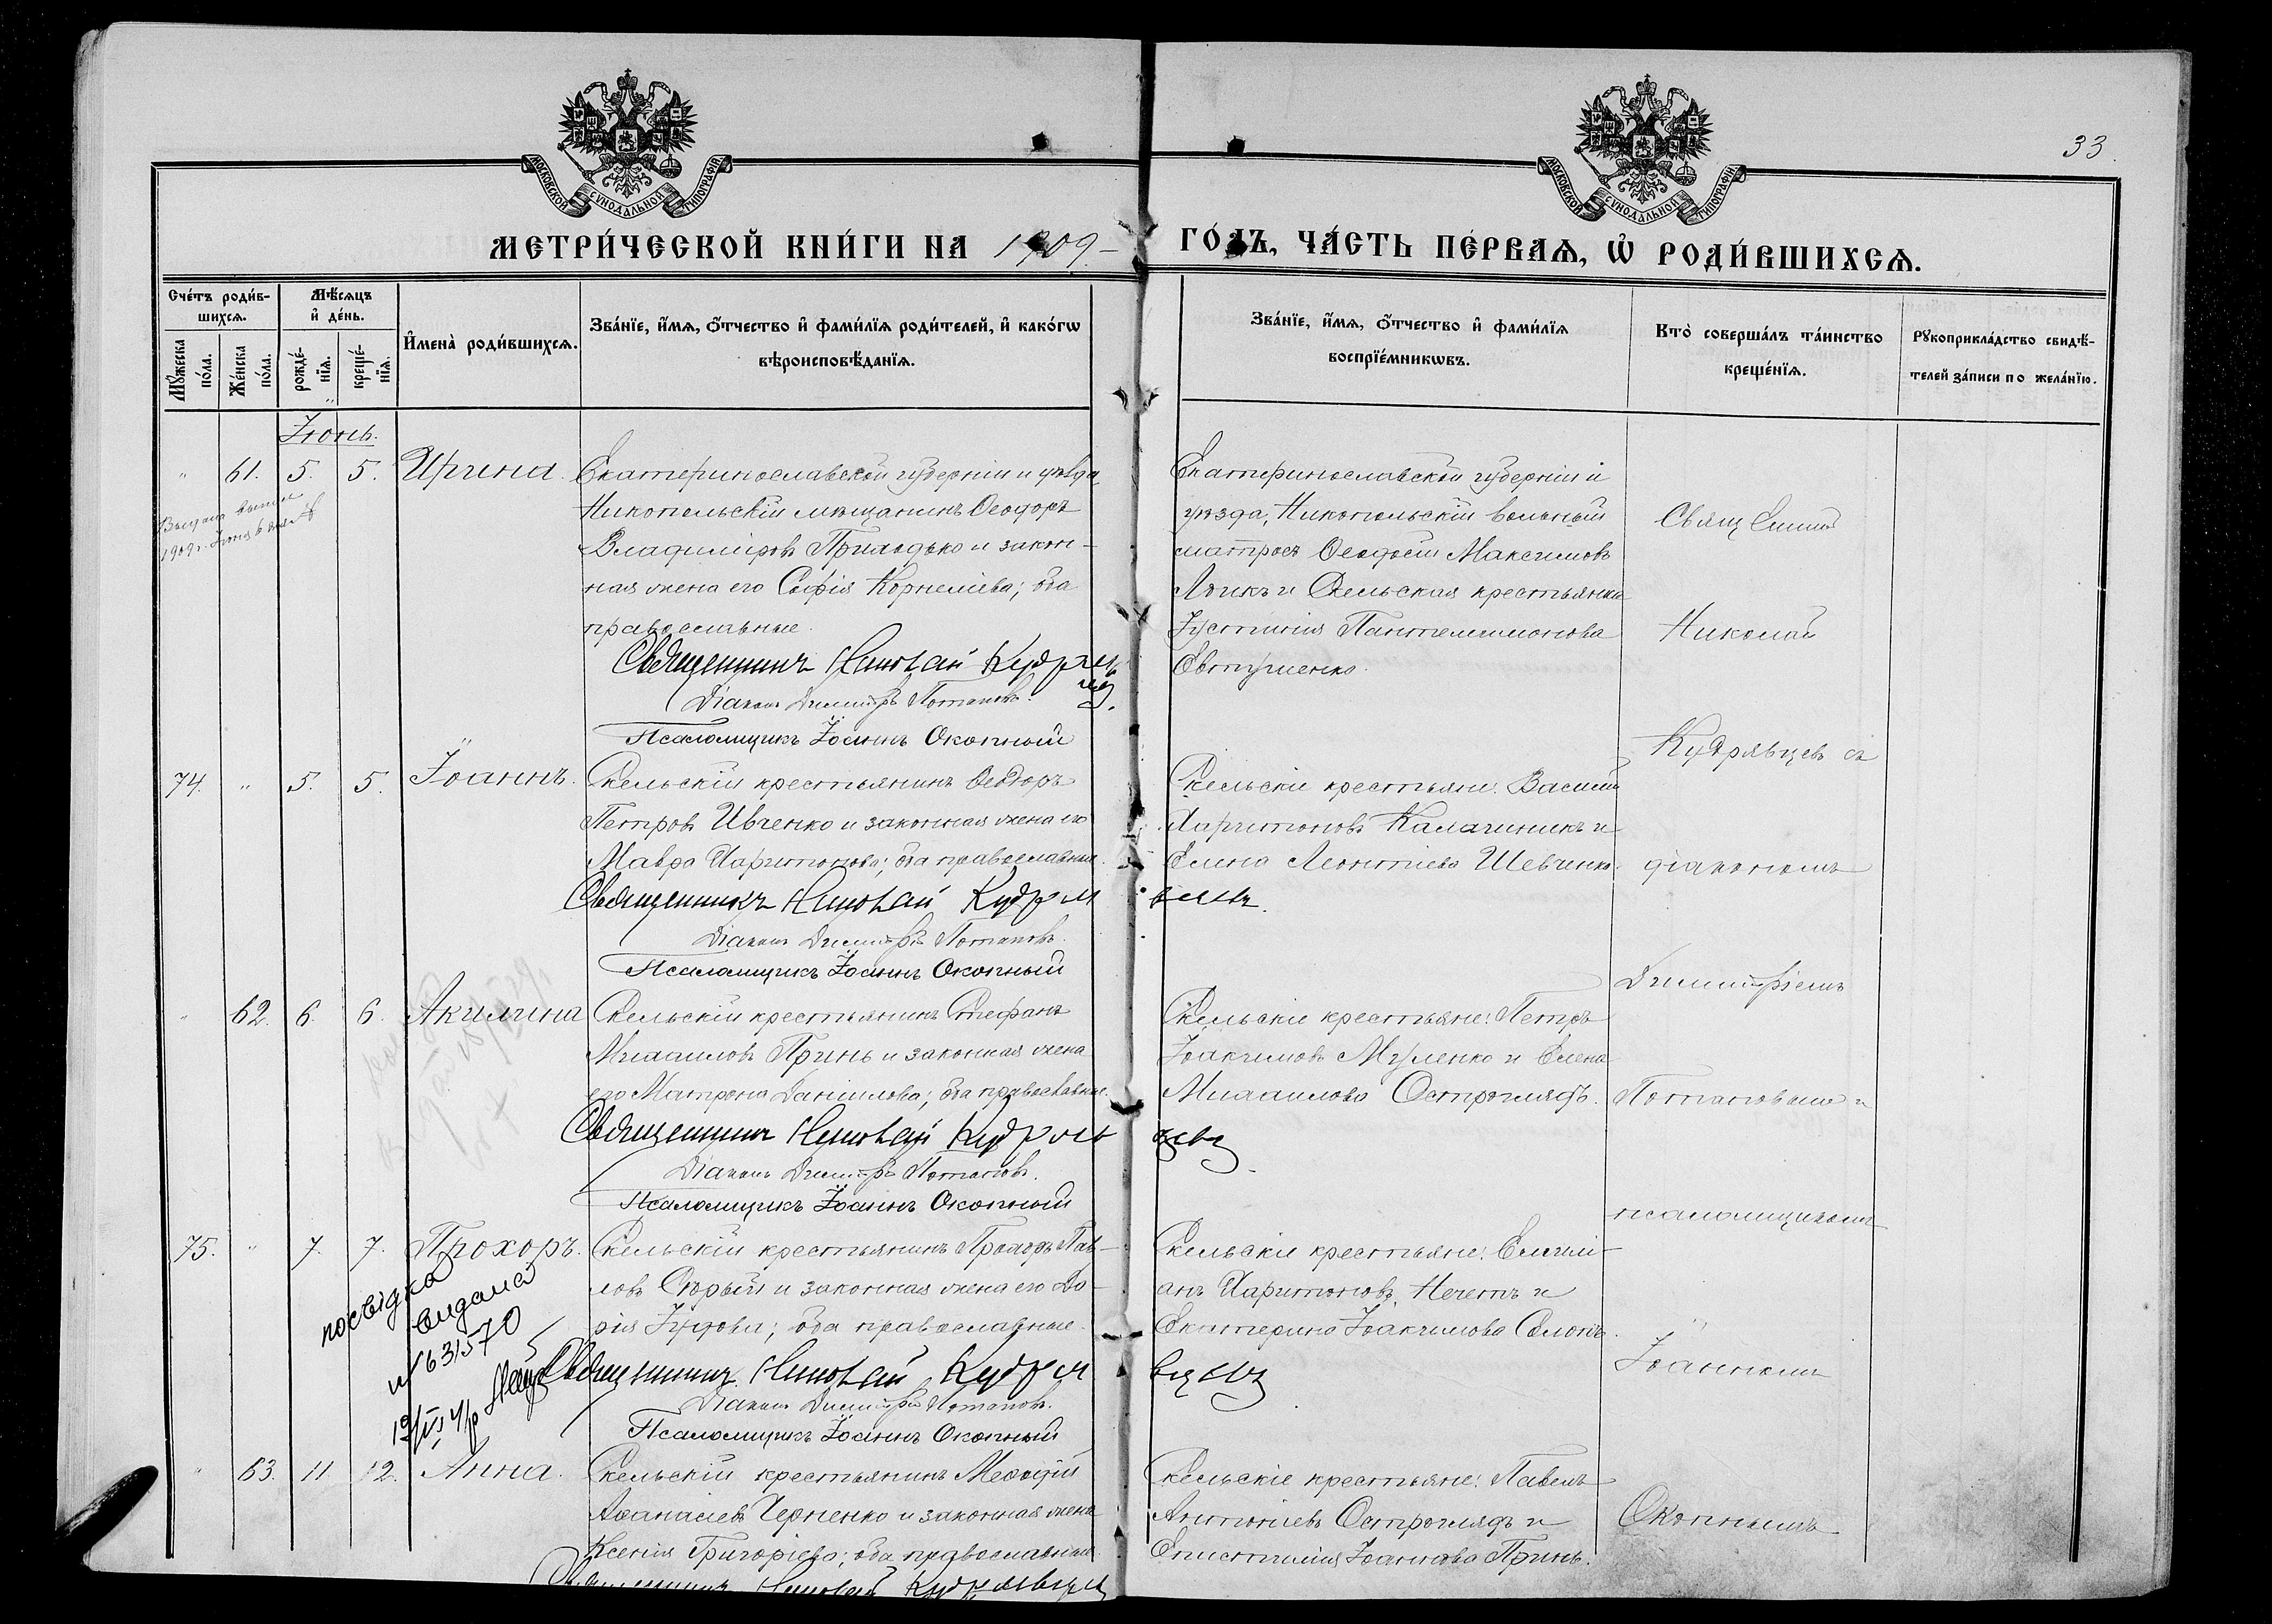 33.
МОСКОВСКОЙ СУНОДАЛЬНОЙ ТИПОГРАФІИ
МОСКОВСКОЙ СУНОДАЛЬНОЙ ТИПОГРАФІИ
МЕТРИ́ЧЕСКОЙ КНИ́ГИ НА 1909 – ГО́ДЪ, ЧА́СТЬ ПЕ́РВАѦ, Ѡ҆ РОДИ́ВШИХСѦ.
Сче́тъ роди́в-
шихсѧ.
Мꙋ́жеска по́ла.
Же́нска по́ла.
Мѣ́сѧцъ
и҆ де́нь.
рожде́-
нїѧ.
креще́-
нїѧ.
И҆мена̀ роди́вшихсѧ.
Зва́нїе, и҆́мѧ, ѻ҆́тчество и҆ фами́лїѧ роди́телей, и҆ како́гѡ
вѣроисповѣ́данїѧ.
Зва́нїе, и҆́мѧ, ѻ҆́тчество и҆ фами́лїѧ
воспрїе́мникѡвъ.
Кто̀ соверша́лъ та́инство
креще́нїѧ.
Рꙋкоприкла́дство свидѣ́-
телей за́писи по жела́нїю.
Іюнь.
" 61. 5. 5. Ирина.
Екатеринославской губерніи и уѣзда
Никопольскій мѣщанинъ Ѳеодоръ
Владиміровъ Приходько и закон-
ная жена его Софія Корнеліева; оба
православные.
Священникъ Николай Кудрявцевъ.
Діаконъ Димитрій Потаповъ.
Псаломщикъ Іоаннъ Окопный
Екатеринославской губерніи и
уѣзда, Никопольскій вольный
матросъ Ѳеодосій Максимовъ
и Скельская крестьянка
Іустинія Пантелеимонова
Евтушенко.
1909 г. Іюня 6 дня
74. " 5. 5. Іоаннъ.
Скельскій крестьянинъ Ѳеодоръ
Петровъ Ивченко и законная жена его
Мавра Харитонова; оба православные.
Священникъ Николай Кудрявцевъ.
Діаконъ Димитрій Потаповъ.
Псаломщикъ Іоаннъ Окопный
Скельскіе крестьяне: Василій
Харитоновъ Калачникъ и
Елена Леонтіева Шевченко.
" 62. 6. 6. Акилина
Скельскій крестьянинъ Стефанъ
Михаиловъ Принь и законная жена
его Матрона Даніилова; оба православные.
Священникъ Николай Кудрявцевъ.
Діаконъ Димитрій Потаповъ.
Псаломщикъ Іоаннъ Окопный
Скельскіе крестьяне: Петръ
Іоакимовъ Муленко и Елена
Михаилова Остроглядъ.
75. " 7. 7. Прохоръ.
Скельскій крестьянинъ Прохоръ Пав-
ловъ Сѣрый и законная жена его Да-
рія Іудова; оба православные.
Священникъ Николай Кудрявцевъ
Діаконъ Димитрій Потаповъ.
Псаломщикъ Іоаннъ Окопный
Скельскіе крестьяне: Емили-
анъ Харитоновъ Нечетъ и
Екатерина Іоакимова
посвідка
видана
№631570
" 63. 11 12. Анна.
Скельскій крестьянинъ Меѳодій
Аѳанасіевъ Черненко и законная жена
Ксенія Григоріева; оба православные.
Священникъ Николай Кудрявцевъ
Скельскіе крестьяне: Павелъ
Антоніевъ Остроглядъ и
Епистимія Іоаннова Принь.
Священникъ
Николай
Кудрявцевъ съ
діакономъ
Димитріемъ
Потаповымъ и
псаломщикомъ
Іоанномъ
Окопнымъ